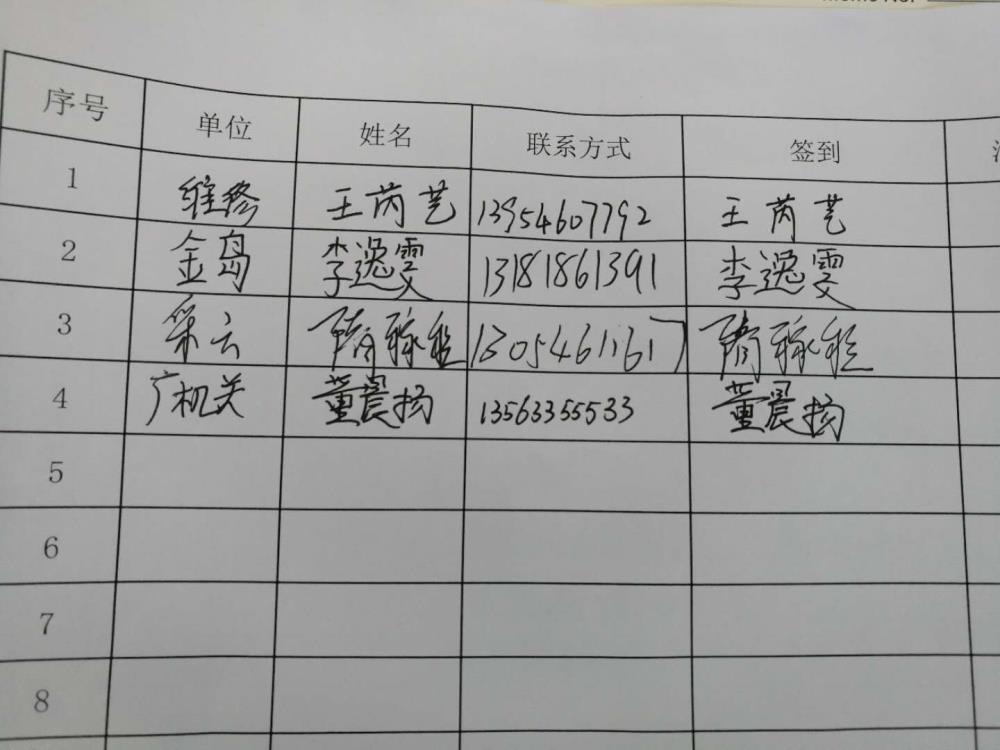 序号 单位 姓名 联系方式 签到
1 维修 王芮艺 13954607792 王芮艺
2 金岛 李逸雯 13181861391 李逸雯
3 采云 隋稼 13054611617 隋稼
4 广机关 董晨扬 13563355533 董晨扬
5
6
7
8